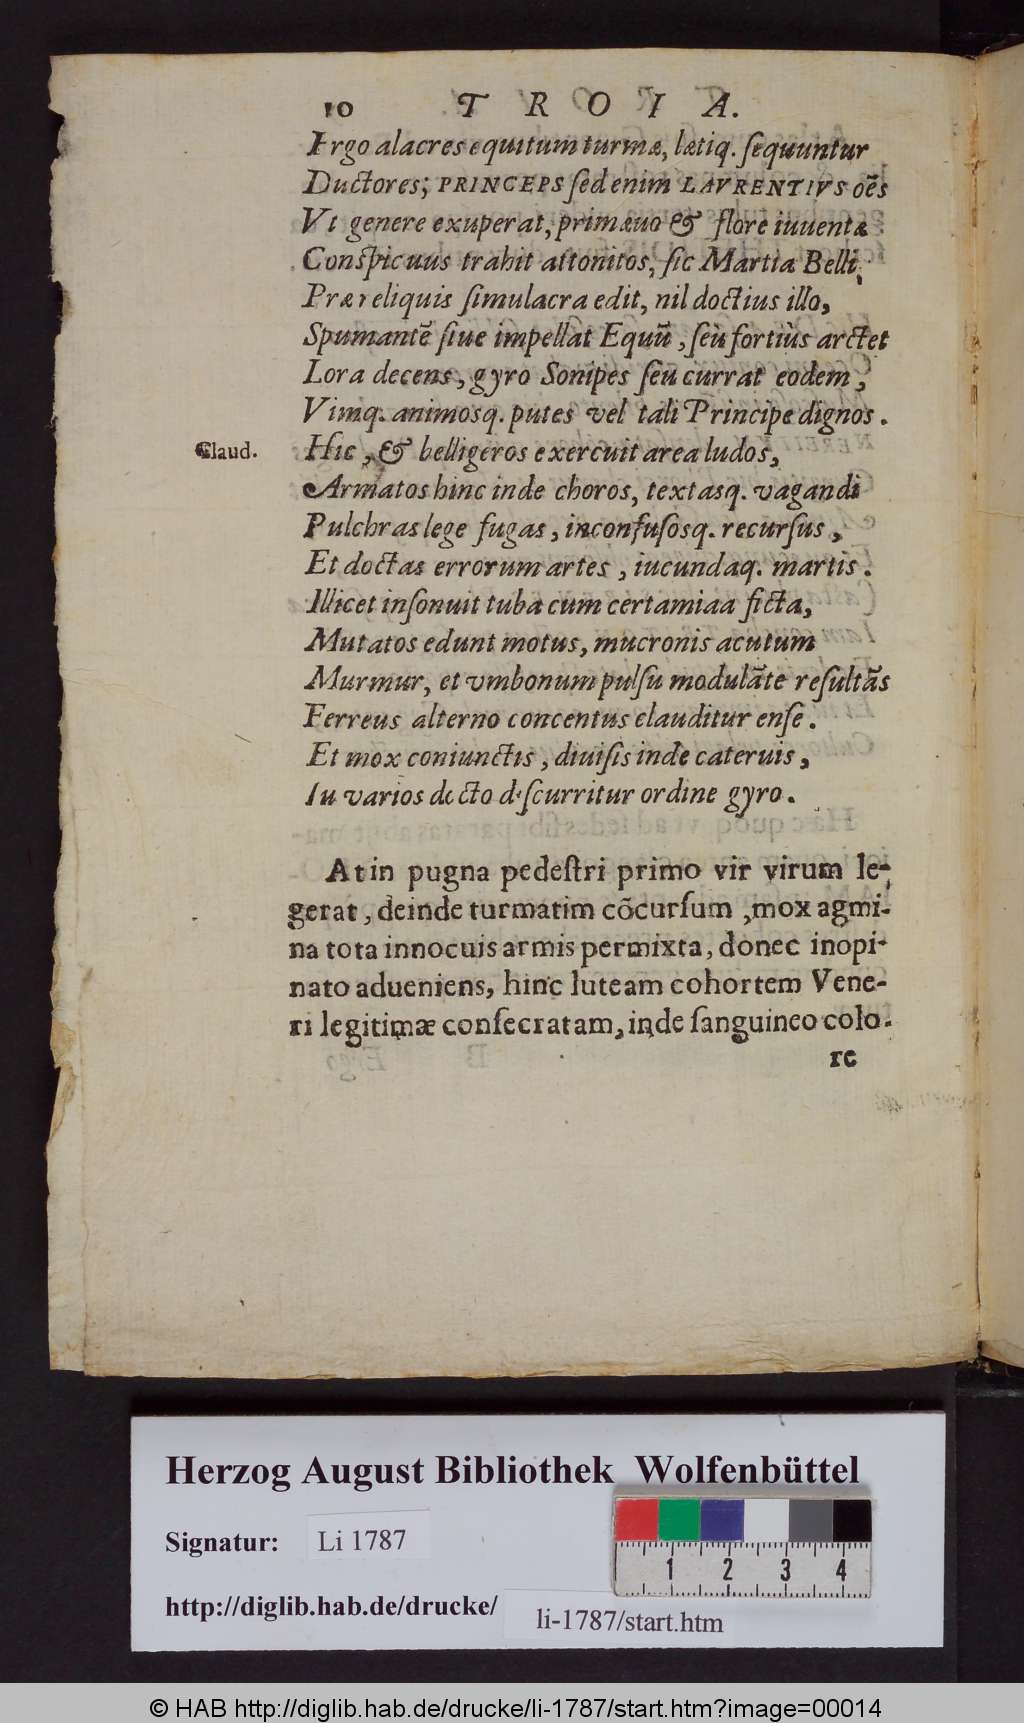 10 TROIA.
Ergo alacres equitum turmæ, lætiq. sequuntur
Ductores; PRINCEPS sed enim LAVRENTIVS oẽs
Vt genere exuperat, primæuo & flore iuuentæ
Conspicuus trahit attonitos, sic Martia Belli,
Præ reliquis simulacra edit, nil doctius illo,
Spumantẽ siue impellat Equũ, seù fortiùs arctet
Lora decens, gyro Sonipes seu currat eodem,
Vimq. animosq. putes vel tali Principe dignos.
Claud. Hic, & belligeros exercuit area ludos,
Armatos hinc inde choros, textasq. vagandi
Pulchras lege fugas, inconfusosq. recursus,
Et doctas errorum artes, iucundaq. martis.
Illicet insonuit tuba cum certamiaa ficta,
Mutatos edunt motus, mucronis acutum
Murmur, et vmbonum pulsu modulãte resultãs
Ferreus alterno concentus clauditur ense.
Et mox coniunctis, diuisis inde cateruis,
Iu varios docto discurritur ordine gyro.
At in pugna pedestri primo vir virum le-
gerat, deinde turmatim cõcursum, mox agmi-
na tota innocuis armis permixta, donec inopi-
nato adueniens, hinc luteam cohortem Vene-
ri legitimæ consecratam, inde sanguineo colo-
re
Herzog August Bibliothek Wolfenbüttel
Signatur: Li 1787
1 2 3 4
http://diglib.hab.de/drucke/ li-1787/start.htm
© HAB http://diglib.hab.de/drucke/li-1787/start.htm?image=00014